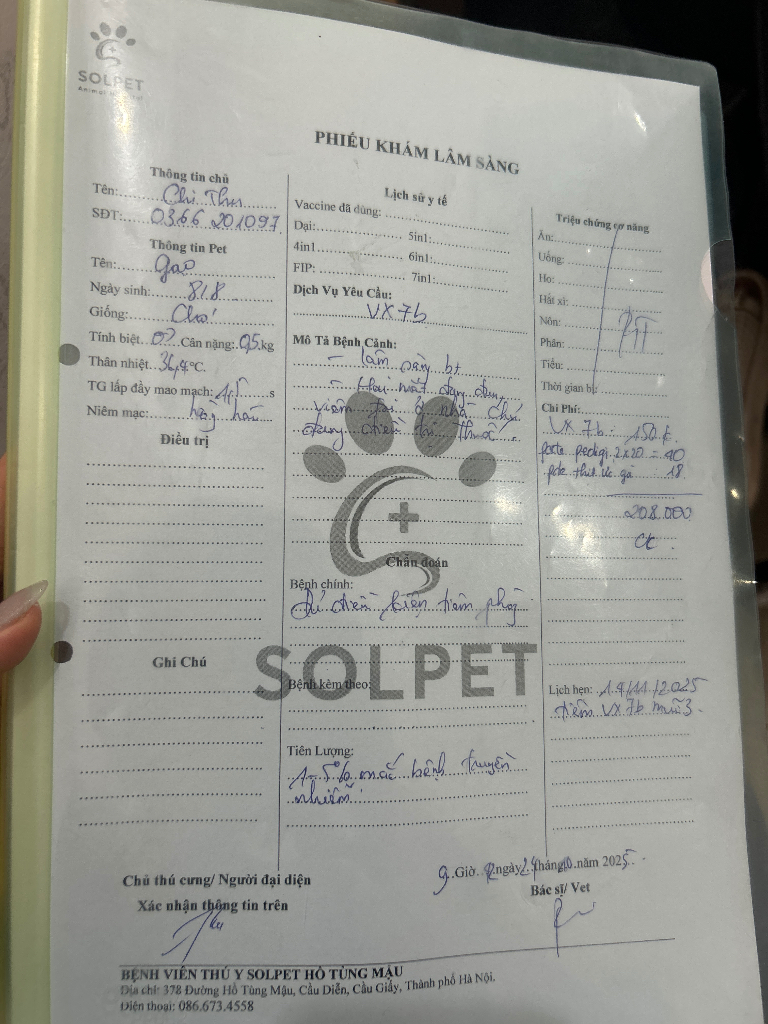 SOLPET
Animal Hospital
PHIẾU KHÁM LÂM SÀNG
Thông tin chủ
Tên: Chị Thu
SĐT: 0366 201097
Thông tin Pet
Tên: Gạo
Ngày sinh: 8/8
Giống: Chó
Tính biệt: Cân nặng: 9,5 kg
Thân nhiệt: °C.
TG lấp đầy mao mạch: s
Niêm mạc: hồng hào
Điều trị
Ghi Chú
Lịch sử y tế
Vaccine đã dùng:
Dại: 5in1:
4in1 6in1:
FIP: 7in1:
Dịch Vụ Yêu Cầu:
VX 7b
Mô Tả Bệnh Cảnh:
- lâm sàng bt
- Hai mắt
viêm tai ở nhà
thuốc.
Chẩn đoán
Bệnh chính:
Đủ điều kiện tiêm phòng
SOLPET
Bệnh kèm theo:
Tiên Lượng:
1-5% mắc bệnh truyền
nhiễm
Triệu chứng cơ năng
Ăn:
Uống:
Ho:
Hắt xì:
Nôn:
Phân:
Tiểu:
Thời gian bị:
Chi Phí:
VX 7b: 150k
pate pedigi 2x20 = 40
pate gà 18
208.000
CK.
Lịch hẹn: 14/11/2025
tiêm VX 7b mũi 3.
9 Giờ ngày 24 tháng 10 năm 2025
Chủ thú cưng/ Người đại diện
Xác nhận thông tin trên
Bác sĩ/ Vet
BỆNH VIỆN THÚ Y SOLPET HỒ TÙNG MẬU
Địa chỉ: 378 Đường Hồ Tùng Mậu, Cầu Diễn, Cầu Giấy, Thành phố Hà Nội.
Điện thoại: 086.673.4558